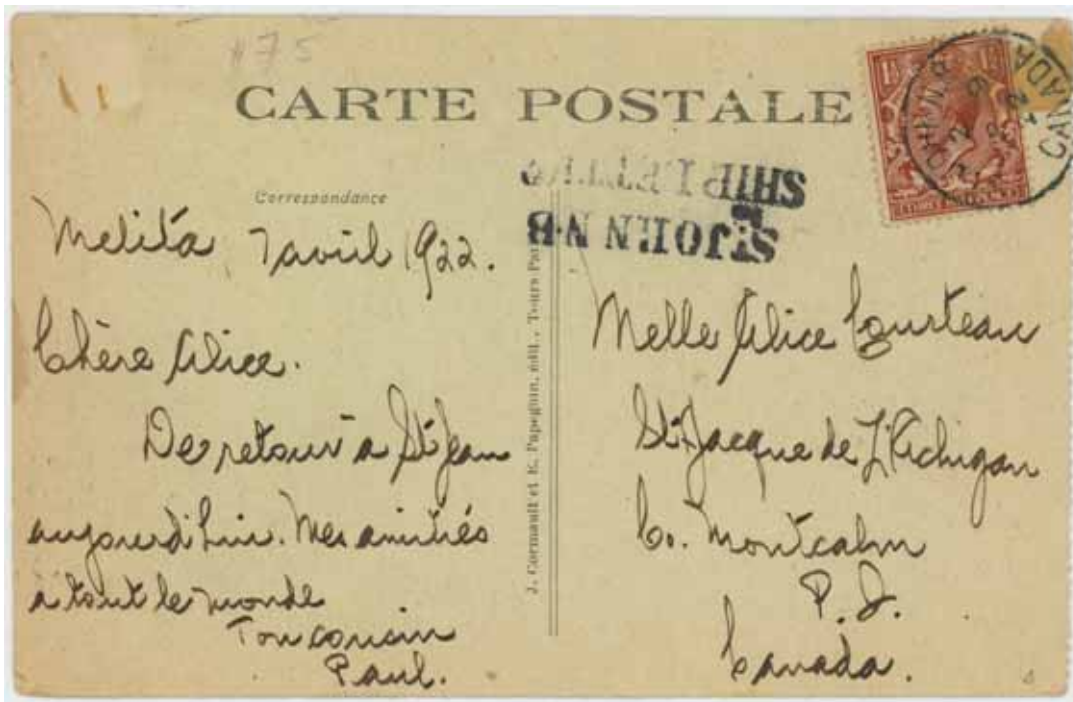 #75
CARTE POSTALE
Correspondance
SHIP LETTER
ST JOHN N.B
Melita, 7 avril 1922.
Chère Alice.
De retour à St Jean
aujourd'hui. Mes amitiés
à tout le monde
Ton cousin
Paul.
J. Cormault et E. Papeghin, édit., Tours-Par
Melle Alice Courteau
St Jacque de L'Achigan
Co. Montcalm
P. Q.
Canada.
CANADA